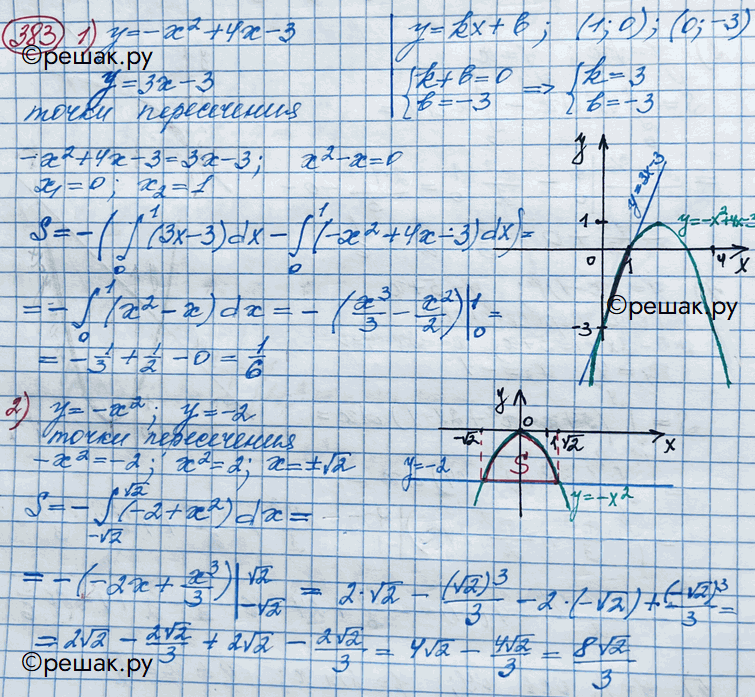 383 1) y = -x² + 4x - 3
©решак.ру
y = 3x - 3
точки пересечения
y = kx + b ; (1; 0) ; (0; -3)
{ k + b = 0 => { k = 3
{ b = -3 { b = -3
-x² + 4x - 3 = 3x - 3 ; x² - x = 0
x₁ = 0 ; x₂ = 1
S = - ( ∫₀¹ (3x - 3) dx - ∫₀¹ (-x² + 4x - 3) dx ) =
= - ∫₀¹ (x² - x) dx = - (x³/3 - x²/2) |₀¹ =
= - 1/3 + 1/2 - 0 = 1/6
y
y = 3x - 3
1
y = -x² + 4x - 3
0 1 4 x
©решак.ру
-3
2) y = -x² ; y = -2
точки пересечения
-x² = -2 ; x² = 2 ; x = ±√2
y
-√2 0 1 √2 x
y = -2 S
y = -x²
S = - ∫_{-√2}^{√2} (-2 + x²) dx =
= - (-2x + x³/3) |_{-√2}^{√2} = 2·√2 - (√2)³/3 - 2·(-√2) + (-√2)³/3 =
= 2√2 - 2√2/3 + 2√2 - 2√2/3 = 4√2 - 4√2/3 = 8√2/3
©решак.ру